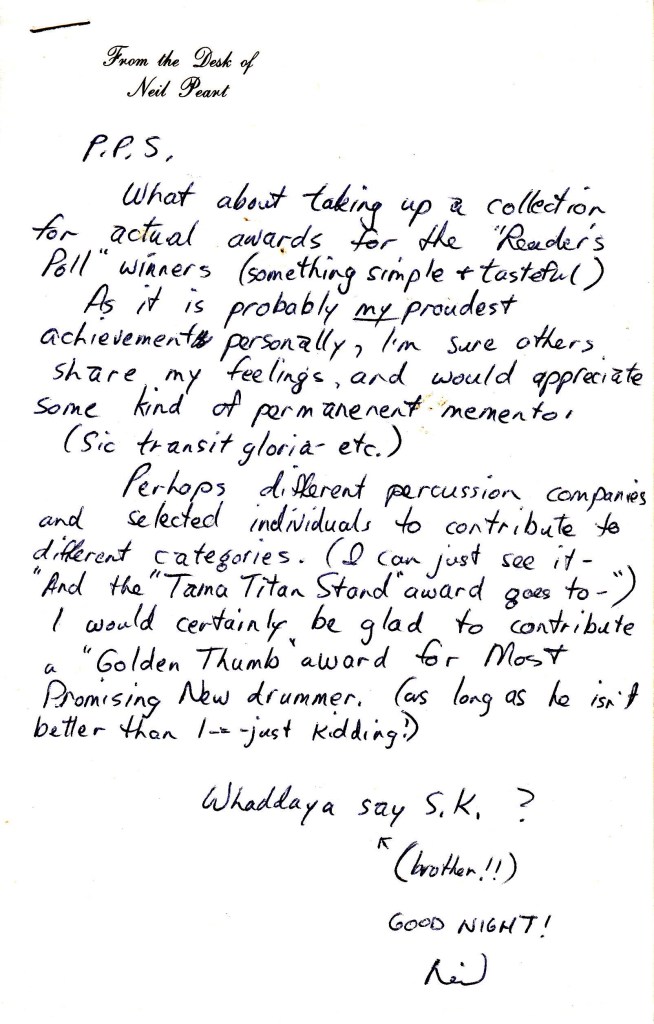 From the Desk of
Neil Peart
P.P.S.
What about taking up a collection
for actual awards for the "Reader's
Poll" winners (something simple + tasteful)
As it is probably my proudest
achievement personally, I'm sure others
share my feelings, and would appreciate
some kind of permanenent memento.
(Sic transit gloria- etc.)
Perhaps different percussion companies
and selected individuals to contribute to
different categories. (I can just see it-
"And the "Tama Titan Stand" award goes to-")
I would certainly be glad to contribute
a "Golden Thumb" award for Most
Promising New drummer. (as long as he isn't
better than I-- -just kidding!)
Whaddaya say S.K. ?
(brother!!)
GOOD NIGHT!
Neil